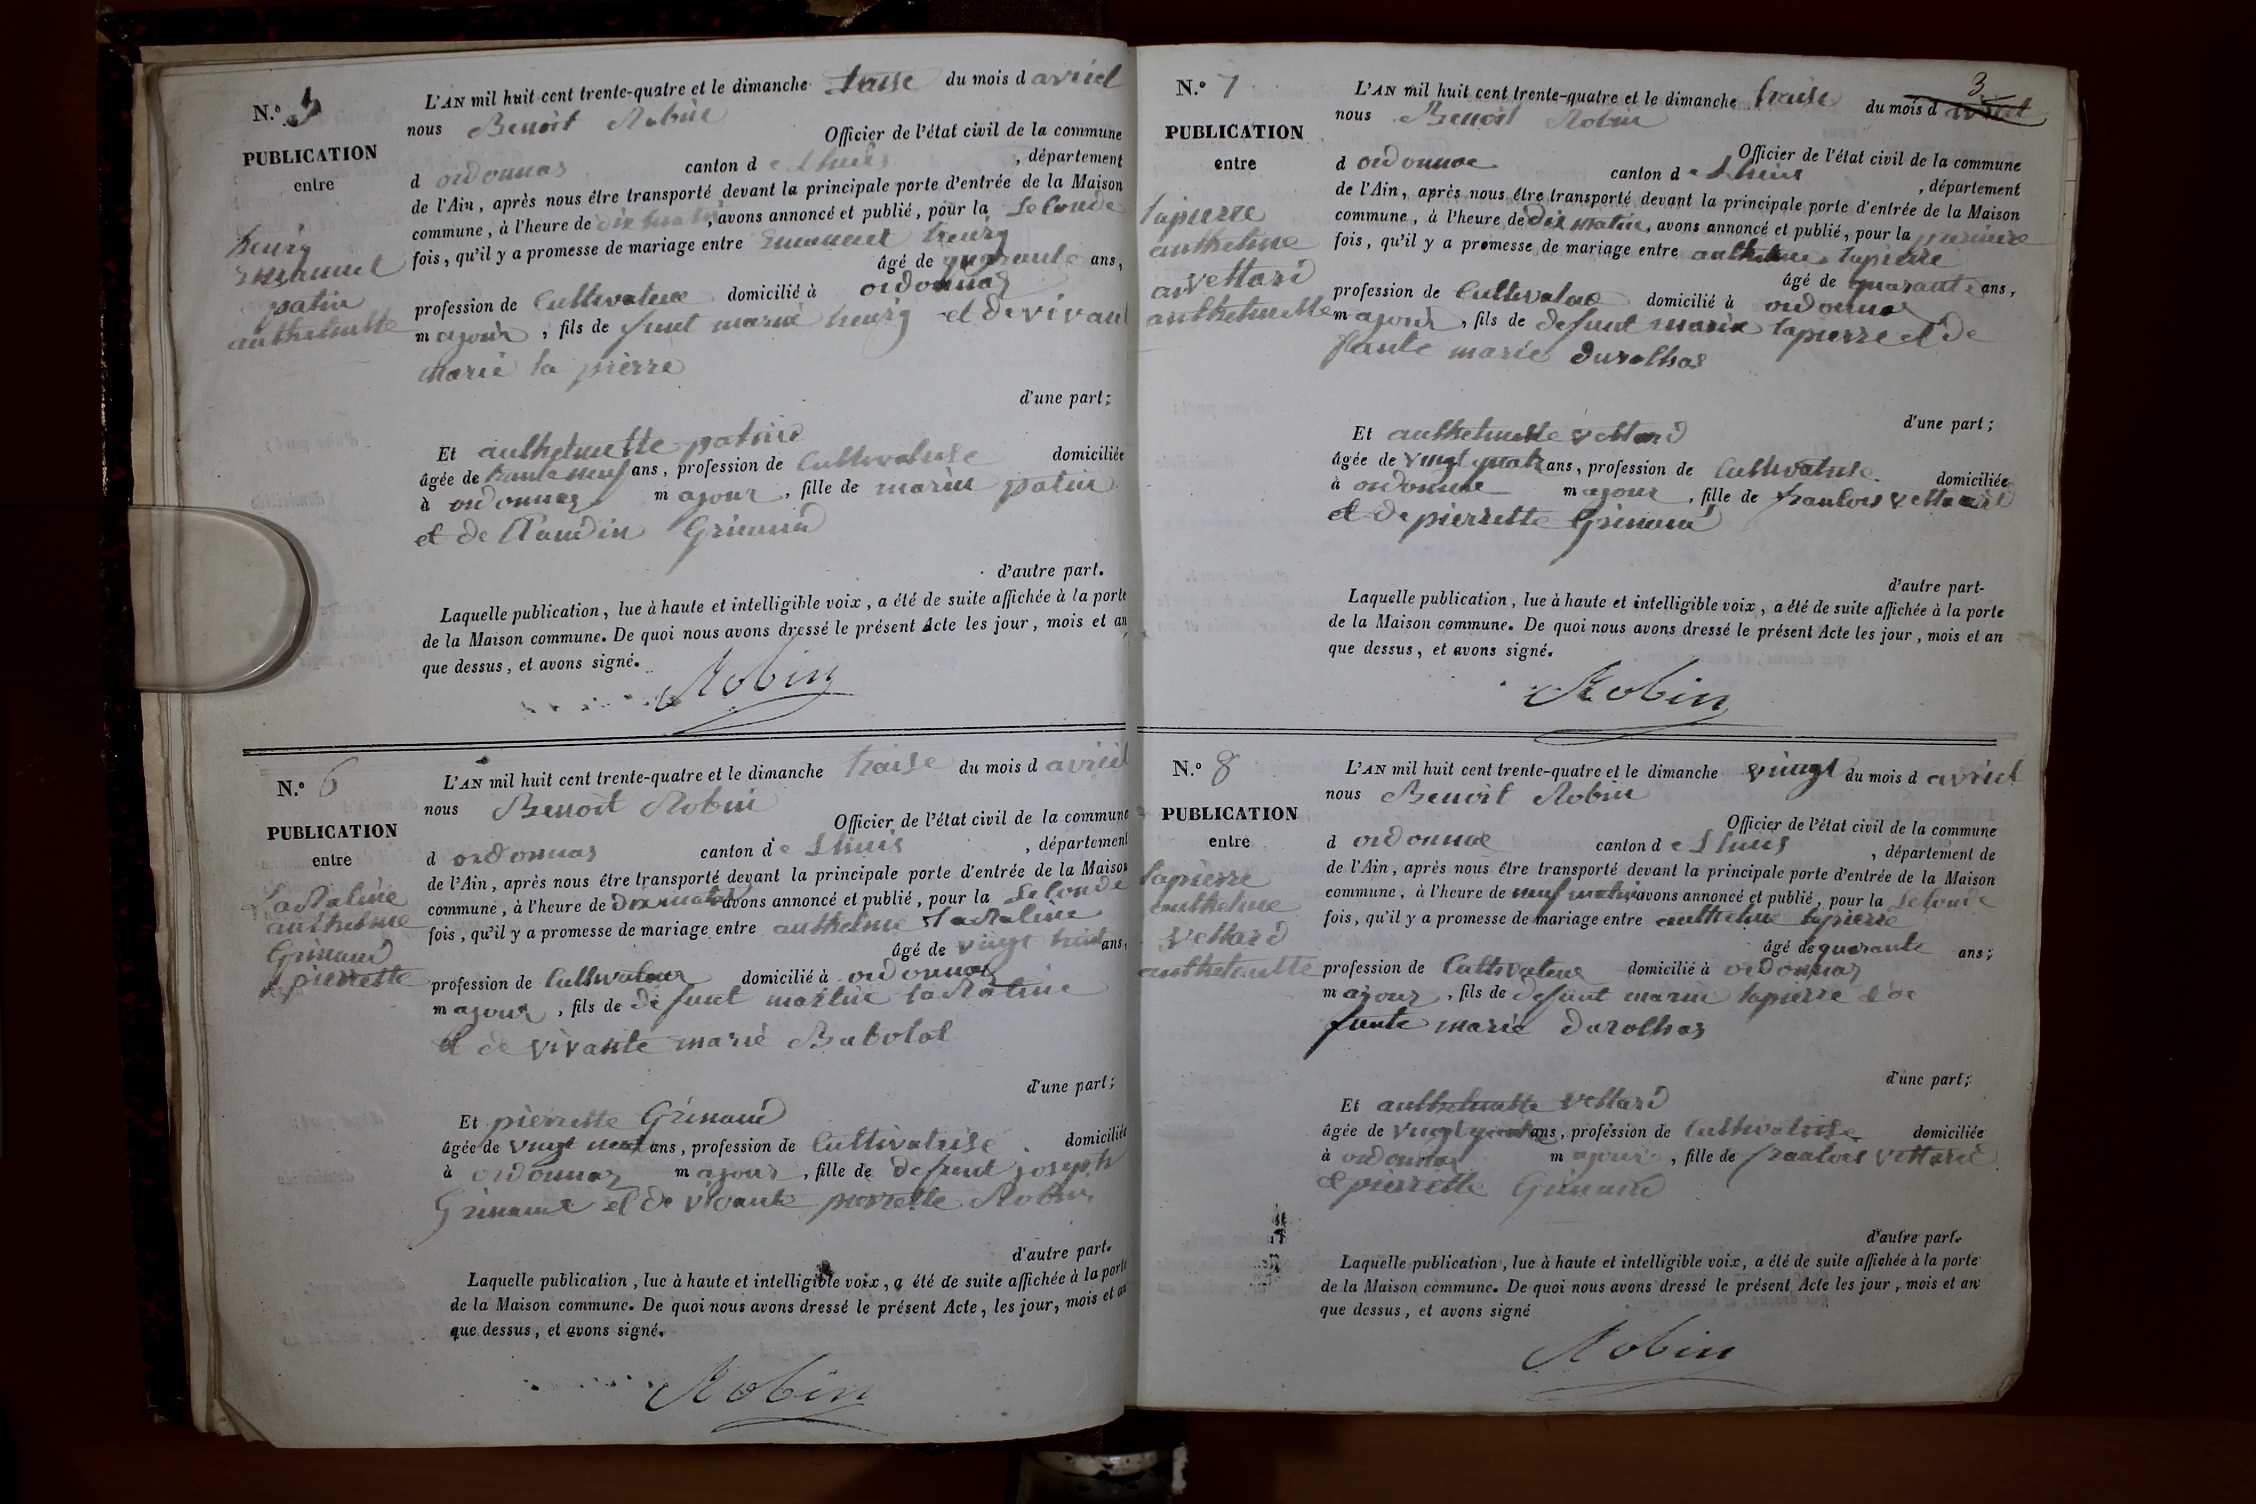 N.º 5
PUBLICATION
entre
heurg
Emanuel
patin
anthelmette
L'AN mil huit cent trente-quatre et le dimanche traise du mois d avriel
nous Benoit Robin
Officier de l'état civil de la commune
d ordonnas canton d e Lhuis , département
de l'Ain, après nous être transporté devant la principale porte d'entrée de la Maison
commune, à l'heure de dix matin, avons annoncé et publié, pour la seconde
fois, qu'il y a promesse de mariage entre Emanuel heurg
âgé de quarante ans,
profession de Cultivateur domicilié à ordonnas
m ajour , fils de funt marin heurg et de vivant
marie la pierre
d'une part;
Et anthelmette patin
âgée de trante neuf ans, profession de Cultivatrise domiciliée
à ordonnas m ajour , fille de marin patin
et de Claudin Grinand
d'autre part.
Laquelle publication, lue à haute et intelligible voix, a été de suite affichée à la porte
de la Maison commune. De quoi nous avons dressé le présent Acte les jour, mois et an
que dessus, et avons signé.
Robin
N.º 6
PUBLICATION
entre
anthelme
Grinand
pierrette
L'AN mil huit cent trente-quatre et le dimanche traise du mois d avriel
nous Benoit Robin
Officier de l'état civil de la commune
d ordonnas canton d e Lhuis , département
de l'Ain, après nous être transporté devant la principale porte d'entrée de la Maison
commune, à l'heure de dix matin avons annoncé et publié, pour la seconde
fois, qu'il y a promesse de mariage entre anthelme
âgé de vingt huit ans,
profession de Cultivateur domicilié à ordonnas
m ajour , fils de defunt martin
et de vivante marie Babolat
d'une part;
Et pierrette Grinand
âgée de vingt neuf ans, profession de Cultivatrise domiciliée
à ordonnas m ajour , fille de defunt joseph
Grinand et de vivante pierrette Robin
d'autre part.
Laquelle publication, lue à haute et intelligible voix, a été de suite affichée à la porte
de la Maison commune. De quoi nous avons dressé le présent Acte, les jour, mois et an
que dessus, et avons signé.
Robin
3
N.º 7
PUBLICATION
entre
lapierre
anthelme
a vettard
anthelmette
L'AN mil huit cent trente-quatre et le dimanche traise du mois d avriel
nous Benoit Robin
Officier de l'état civil de la commune
d ordonnas canton d e Lhuis , département
de l'Ain, après nous être transporté devant la principale porte d'entrée de la Maison
commune, à l'heure de dix matin, avons annoncé et publié, pour la premiere
fois, qu'il y a promesse de mariage entre anthelme lapierre
âgé de quarante ans,
profession de Cultivateur domicilié à ordonnas
m ajour , fils de defunt marin lapierre et de
funte marie durolhas
d'une part;
Et anthelmette vettard
âgée de vingt quatre ans, profession de Cultivatrise domiciliée
à ordonnas m ajour , fille de franlois vettard
et de pierrette Grinand
d'autre part-
Laquelle publication, lue à haute et intelligible voix, a été de suite affichée à la porte
de la Maison commune. De quoi nous avons dressé le présent Acte les jour, mois et an
que dessus, et avons signé.
Robin
N.º 8
PUBLICATION
entre
lapierre
anthelme
vettard
anthelmette
L'AN mil huit cent trente-quatre et le dimanche vingt du mois d avriel
nous Benoit Robin
Officier de l'état civil de la commune
d ordonnas canton d e Lhuis , département de
de l'Ain, après nous être transporté devant la principale porte d'entrée de la Maison
commune, à l'heure de neuf matin avons annoncé et publié, pour la
fois, qu'il y a promesse de mariage entre anthelme lapierre
âgé de quarante ans;
profession de Cultivateur domicilié à ordonnas
m ajour , fils de defunt marin lapierre & de
funte marie durolhas
d'une part;
Et anthelmette vettard
âgée de vingt quatre ans, profession de Cultivatrise domiciliée
à ordonnas m ajour , fille de franlois vettard
& pierrette Grinand
d'autre part.
Laquelle publication, lue à haute et intelligible voix, a été de suite affichée à la porte
de la Maison commune. De quoi nous avons dressé le présent Acte les jour, mois et an
que dessus, et avons signé
Robin